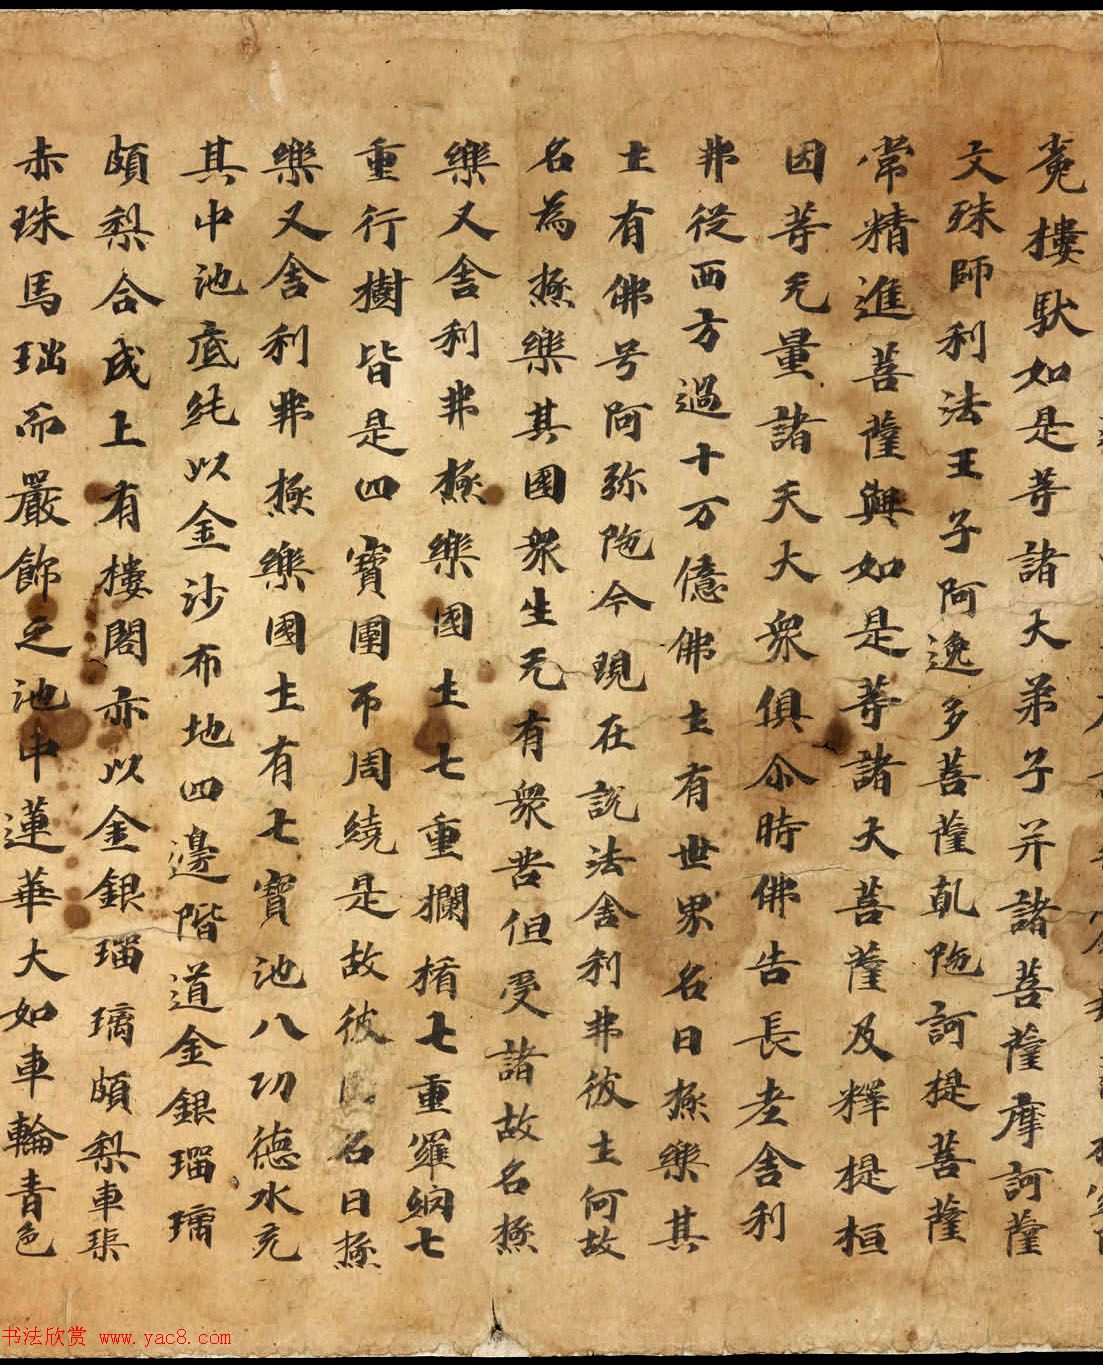 菟樓馱如是等諸大弟子并諸菩薩摩訶薩
文殊師利法王子阿逸多菩薩乹陁訶提菩薩
常精進菩薩與如是等諸大菩薩及釋提桓
因等无量諸天大衆俱尒時佛告長老舍利
弗從西方過十万億佛土有世界名曰極樂其
土有佛号阿弥陁今現在説法舍利弗彼土何故
名為極樂其國衆生无有衆苦但受諸故名極
樂又舍利弗極樂國土七重欄楯七重羅網七
重行樹皆是四寶圍帀周繞是故彼國名曰極
樂又舍利弗極樂國土有七寶池八功德水充
其中池底純以金沙布地四邊階道金銀瑠璃
頗梨合成上有樓閣亦以金銀瑠璃頗梨車𤦲
赤珠馬瑙而嚴飾之池中蓮華大如車輪青色
书法欣赏 www.yac8.com